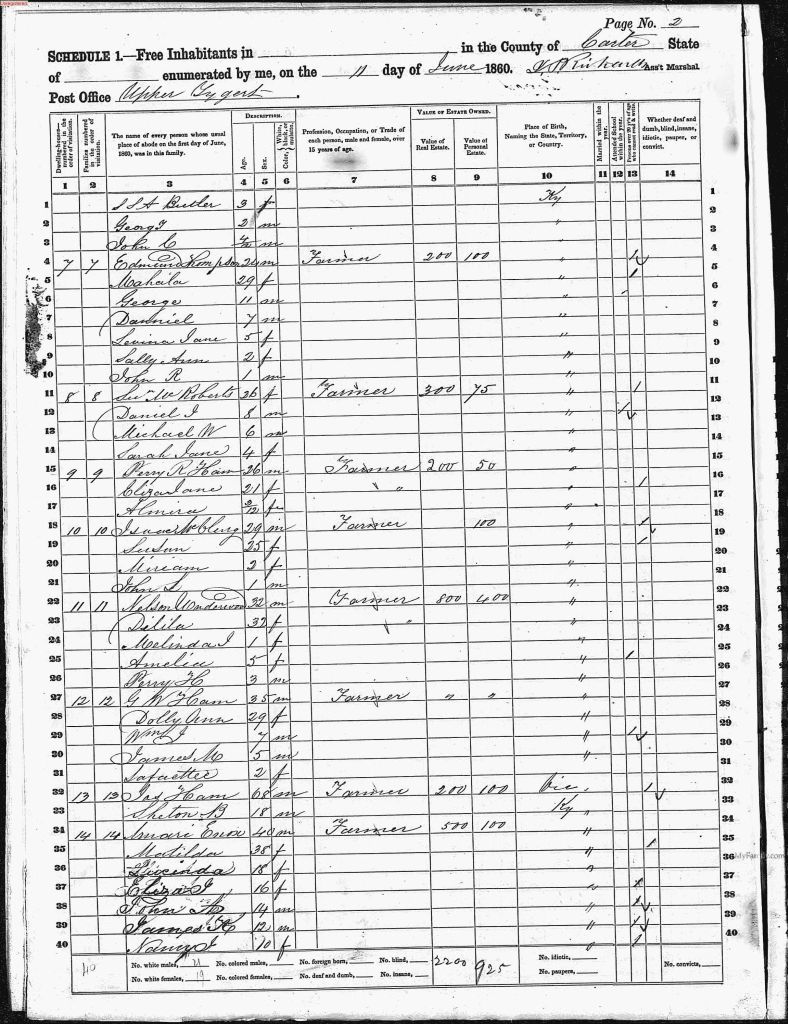 Page No. 2
SCHEDULE 1.—Free Inhabitants in in the County of Carter State
of enumerated by me, on the 11 day of June 1860. Ass't Marshal
Post Office Upper Tygert
DESCRIPTION. VALUE OF ESTATE OWNED.
Dwelling-houses—numbered in the order of visitation. Families numbered in the order of visitation. The name of every person whose usual place of abode on the first day of June, 1860, was in this family. Age. Sex. Color, {White, black, or mulatto. Profession, Occupation, or Trade of each person, male and female, over 15 years of age. Value of Real Estate. Value of Personal Estate. Place of Birth, Naming the State, Territory, or Country. Married within the year. Attended School within the year. Persons over 20 years of age who cannot read & write. Whether deaf and dumb, blind, insane, idiotic, pauper, or convict.
1 2 3 4 5 6 7 8 9 10 11 12 13 14
1 S S A Butler 3 f Ky 1
2 2 m " 2
3 John C m " 3
4 7 7 Edmund Thompson 24 m Farmer 200 100 " 1 4
5 Mahaila 29 f " 1 5
6 George 11 m " 6
7 Danniel 7 m " 7
8 Levina Jane 5 f " 8
9 Sally Ann 2 f " 9
10 John R 1 m " 10
11 8 8 McRoberts 26 f Farmer 300 75 " 1 11
12 Daniel J 8 m " 12
13 Michael W 6 m " 13
14 Sarah Jane 4 f " 14
15 9 9 Perry R Ham 26 m Farmer 200 50 " 15
16 Eliza Jane 21 f " " 1 16
17 Almira 2/12 f " 17
18 10 10 Isaac McClerg 29 m Farmer 100 " 1 18
19 Susan 25 f " 1 19
20 Miream 2 f " 20
21 John S 1 m " 21
22 11 11 Nelson Underwood 32 m Farmer 800 400 " 22
23 Delila 32 f " " 23
24 Melinda J 1 f " 24
25 Amelia 5 f " 1 25
26 Perry H 3 m " 26
27 12 12 G W Ham 35 m Farmer " " " 27
28 Dolly Ann 29 f " 28
29 Wm J 7 m " 1 29
30 James M 5 m " 30
31 Lafaettee 2 f " 31
32 13 13 Jas Ham 68 m Farmer 200 100 1 32
33 Shelton B 18 m Ky 33
34 14 14 Enox 40 m Farmer 500 100 " 34
35 Matilda 38 f " 1 35
36 Lucinda 18 f " 36
37 Eliza J 16 f " 37
38 John 14 m " 38
39 James 12 m " 39
40 Nancy J 10 f " 40
40 No. white males, 21 No. colored males, No. foreign born, No. blind, 2200 925 No. idiotic, No. convicts,
No. white females, 19 No. colored females, No. deaf and dumb, No. insane, No. paupers,